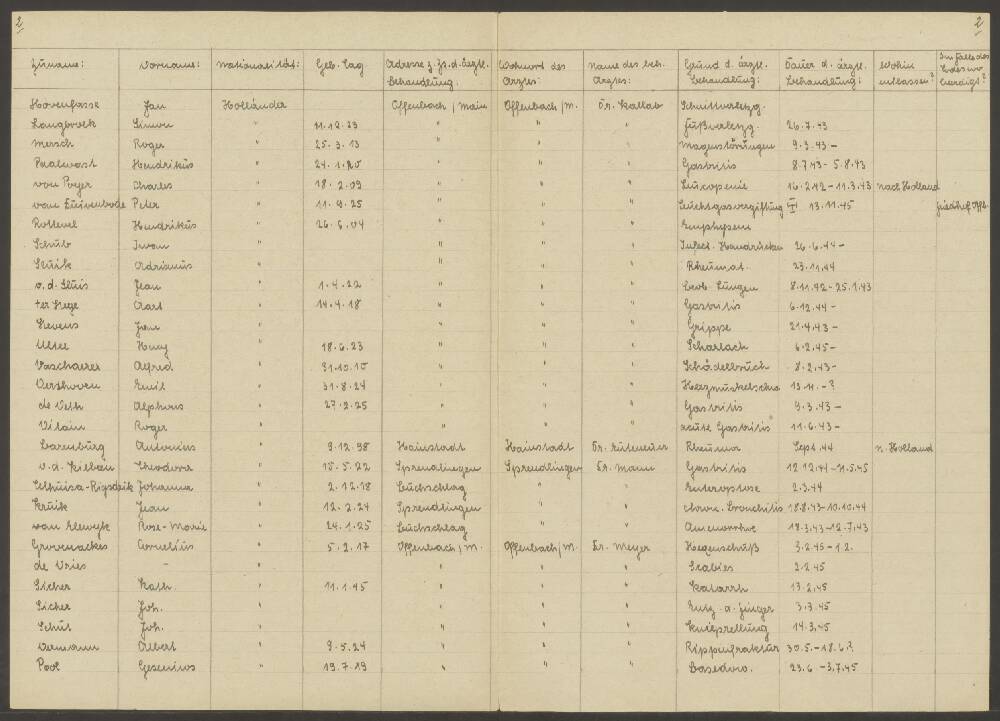 2 2
Zuname: Vorname: Nationalität: Geb. Tag. Adresse z. Zt. d. ärztl. Behandlung: Wohnort des Arztes: Name des beh. Arztes: Grund d. ärztl. Behandlung: Dauer d. ärztl. Behandlung: Wohin entlassen? Im Falle des Todes wo beerdigt?
Jan Holländer Offenbach/Main Offenbach/M. Dr. Kallab Schnittverletzg.
Langbroek Simon " 11.12.23 " " " Fußverletzg. 26.7.43
Mersch Roger " 25.3.13 " " " Magenstörungen 9.3.43 -
Hendrikus " 24.1.20 " " " Gastritis 8.7.43 - 5.8.43
van Poyer Charles " 18.2.09 " " " Leucopenie 16.2.42 - 11.3.43 nach Holland
van Zuivenbode Peter " 11.9.25 " " " Leuchtgasvergiftung 13.11.45 Friedhof Offb.
Hendrikus " 26.6.04 " " " Emphysem
Schub Iwan " " " " Infect. Handrücken 26.6.44 -
Sluik Adrianus " " " " Rheumat. 23.11.44
v.d. Sluis Jean " 1.4.22 " " " Lungen 8.11.42 - 25.1.43
ter Stege Aart " 14.4.18 " " " Gastritis 6.12.44 -
Stevens Jan " " " " Grippe 21.4.43 -
Ulsee " 18.6.23 " " " Scharlach 6.2.45 -
Vaschaerer Alfrid " 31.10.10 " " " Schädelbruch 8.2.43 -
Verthoven Emil " 31.8.24 " " " 13.11. - ?
de Veth Alphons " 27.2.25 " " " Gastritis 9.3.43 -
Vilain Roger " " " " acute Gastritis 11.6.43 -
Antonius " 9.12.98 Hainstadt Hainstadt Dr. Rheuma Sept. 44 n. Holland
Theodora " 15.5.22 Sprendlingen Sprendlingen Dr. Mann Gastritis 12.12.44 - 11.5.45
Johanna " 2.12.18 Buchschlag " " Enteroptose 2.3.44
Kruik Jean " 12.2.24 Sprendlingen " " chron. Bronchitis 18.8.43 - 10.10.44
Rose-Marie " 24.1.25 Buchschlag " " Amenorrhoe 18.3.43 - 12.7.43
Cornelius " 5.2.17 Offenbach/M. Offenbach/M. Dr. Meyer Hexenschuß 3.2.45 - 1.2.
de Vries - " " " " Scabies 2.2.45
Sicher Kath. " 11.1.45 " " " Katarrh 13.2.45
Sicher Joh. " " " " Entz. a. Finger 3.3.45
Schut Joh. " " " " Knieprellung 14.3.45
Vermann Albert " 9.5.24 " " " Rippenfraktur 30.5. - 18.6.?
Pool Gesenius " 19.7.19 " " " Basedow. 23.6 - 3.7.45